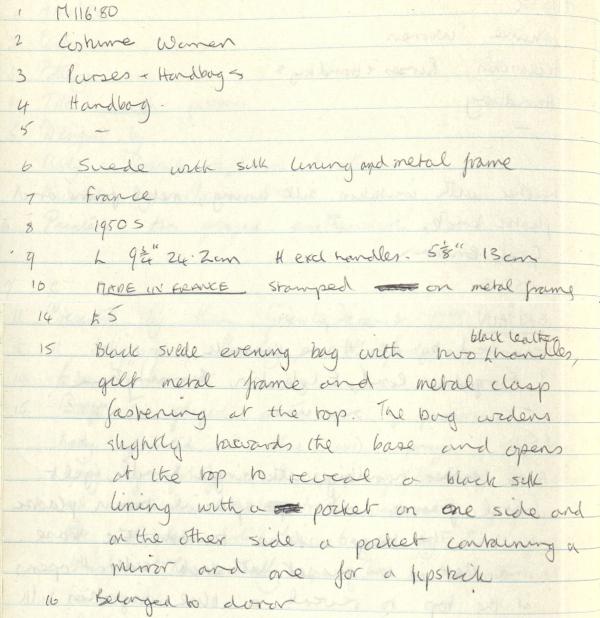 1 M116'80
2 Costume Women
3 Purses + Handbags
4 Handbag.
5 -
6 Suede with silk lining and metal frame
7 France
8 1950s
9 L 9 3/4" 24.2cm H excl handles. 5 1/8" 13cm
10 MADE IN FRANCE stamped on metal frame
14 £5
15 Black suede evening bag with two black leather handles,
gilt metal frame and metal clasp
fastening at the top. The bag widens
slightly towards the base and opens
at the top to reveal a black silk
lining with a pocket on one side and
on the other side a pocket containing a
mirror and one for a lipstick
16 Belonged to donor